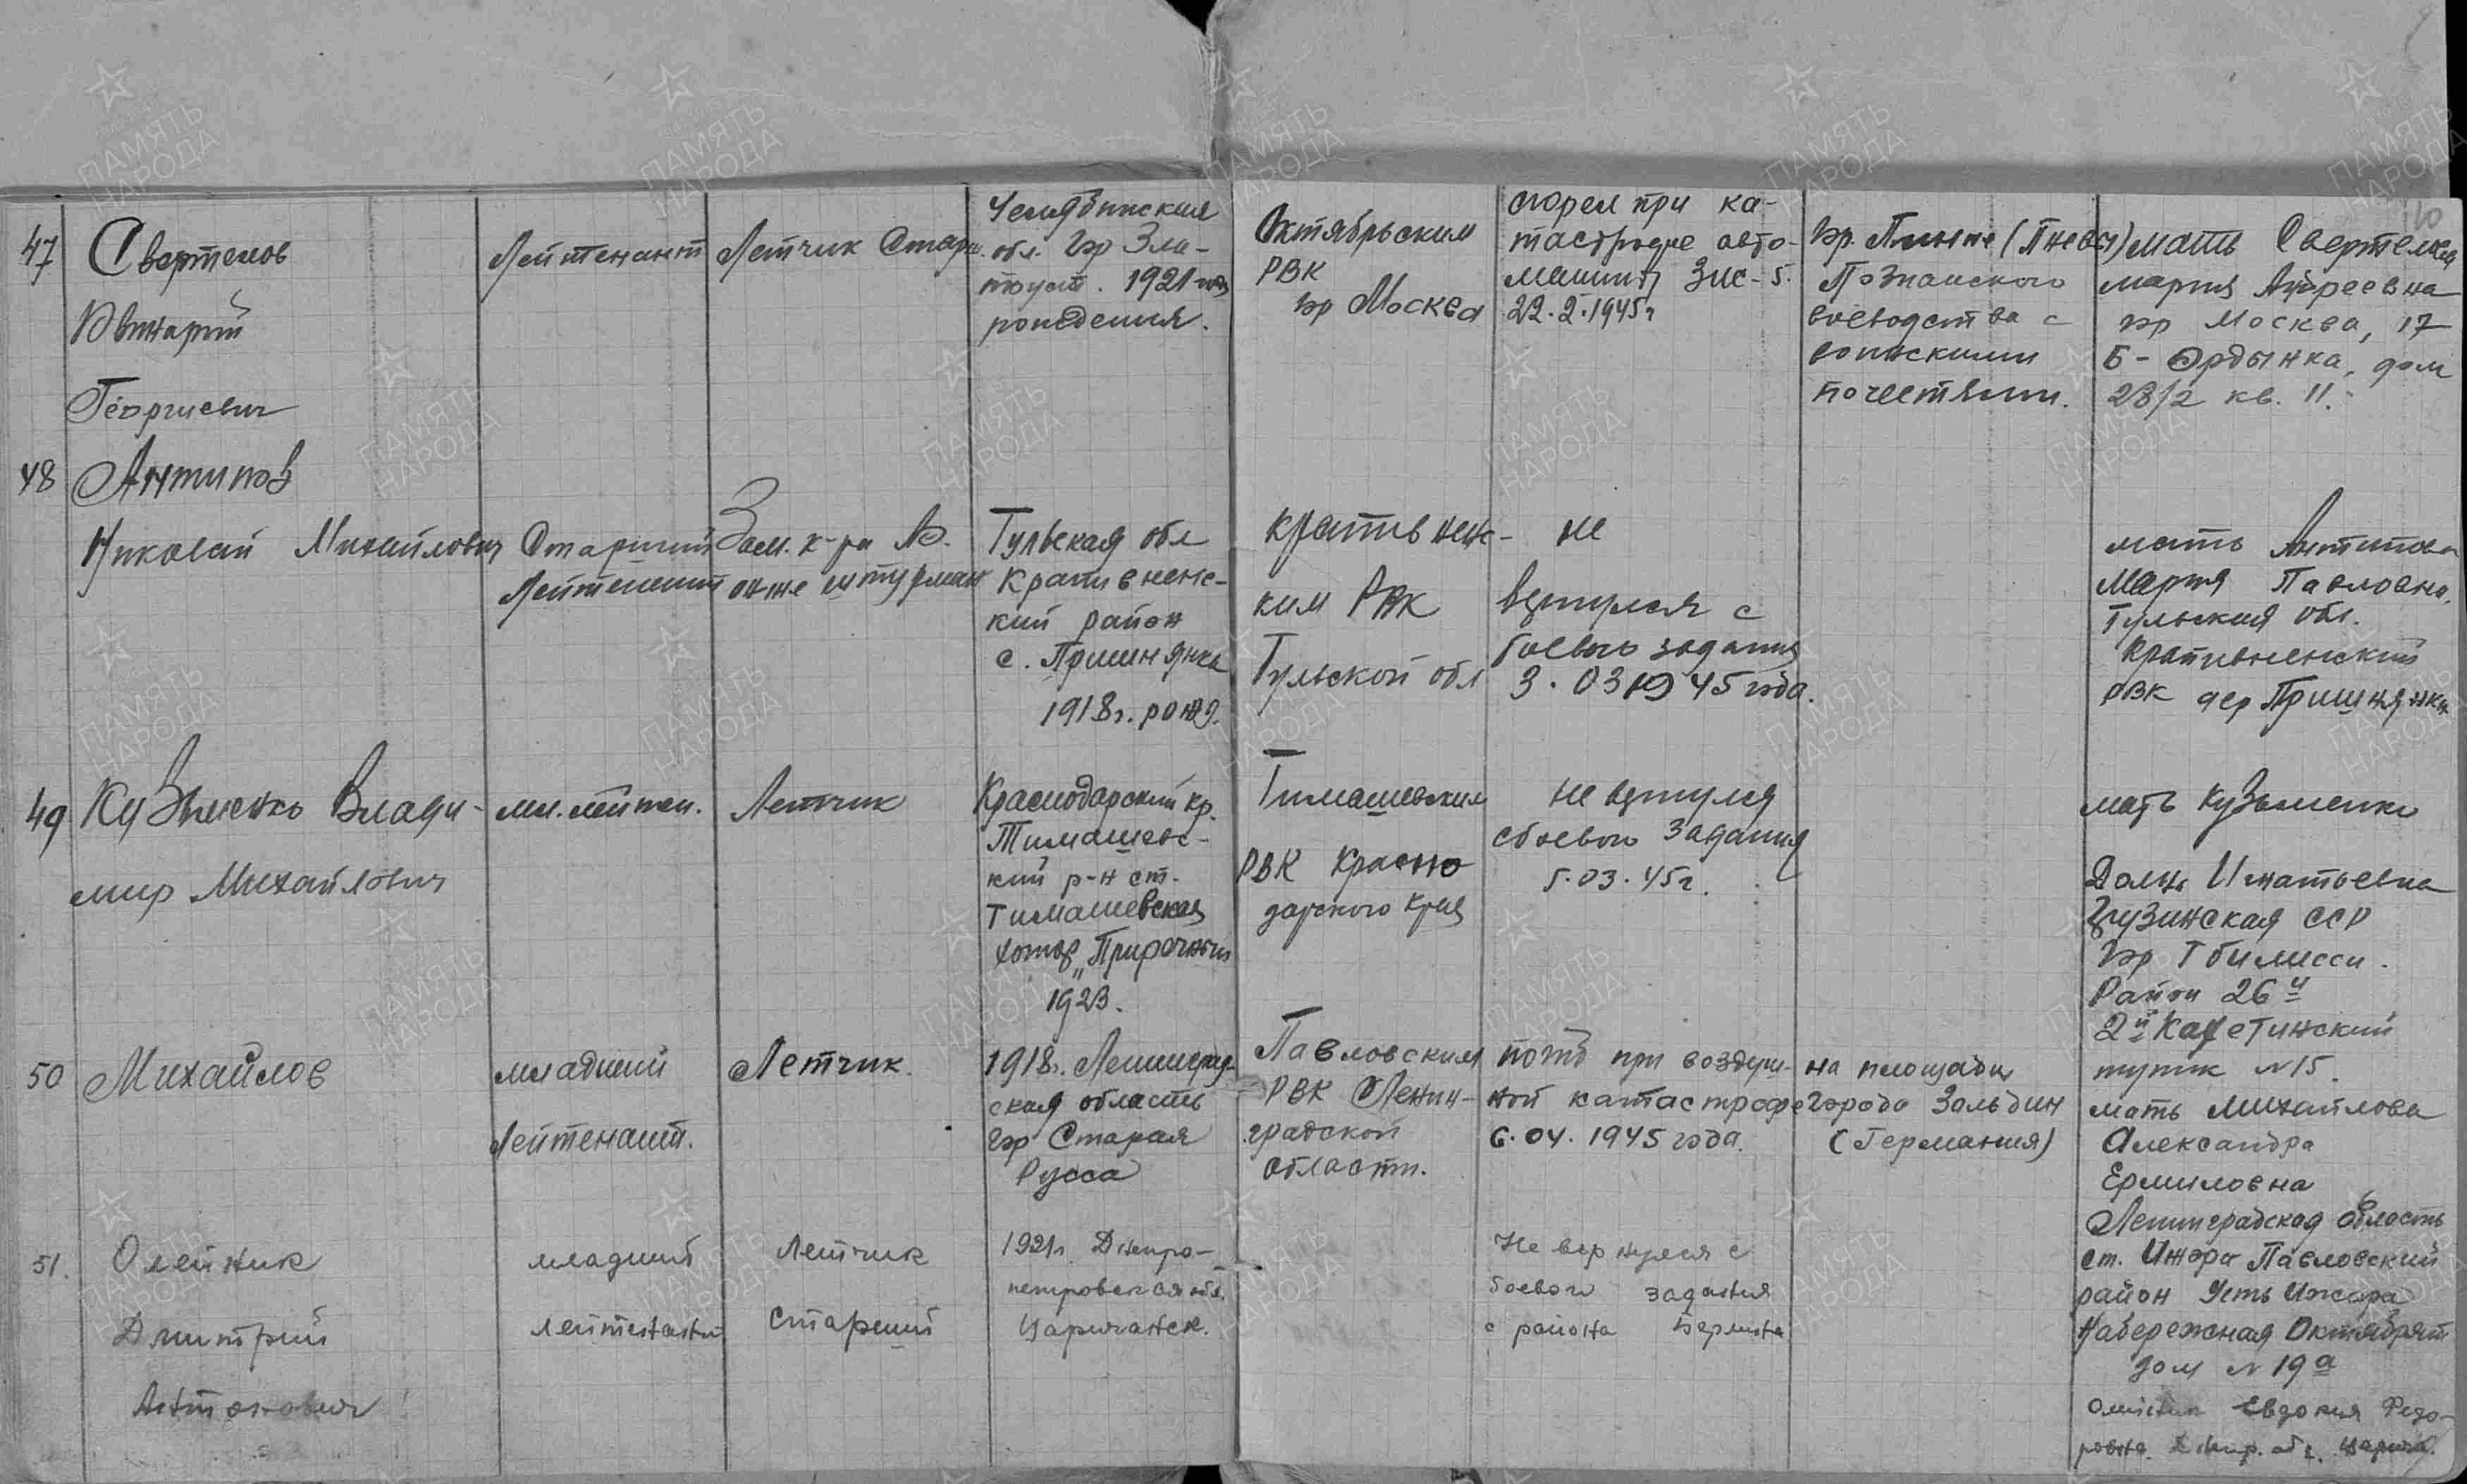 10
47
Свертелов
Ювинарий
Георгиевич
Лейтенант
Летчик Старш.
Челябинская
обл. гор Зла-
тоуст. 1921 год
рождения.
Октябрьским
РВК
гор Москва
сгорел при ка-
тастрофе авто-
машины Зис-5.
22.2.1945г
гор. Пинне (Пневы)
Познанского
воеводства с
воинскими
почестями.
мать Свертелова
Мария Андреевна
гор Москва, 17
Б-Ордынка, дом
28/2 кв. 11.
48
Антипов
Николай Михайлович
Старший
Лейтенант
Зам. к-ра АЭ.
он же штурман
Тульская обл
Крапивенс-
кий район
с. Пришнянка
1918г. рожд.
Крапивенс-
ким РВК
Тульской обл
не
вернулся с
боевого задания
3.03 1945 года.
мать Антипова
Мария Павловна.
Тульская обл.
Крапивненский
РВК дер Пришнянка
49
Кузьменко Влади-
мир Михайлович
мл. лейтен.
Летчик
Краснодарский кр.
Тимашевс-
кий р-н ст.
Тимашевская
хутор „Приречный
1923.
Тимашевским
РВК Красно
дарского края
не вернулся
с боевого задания
5.03.45г.
мать Кузьменко
Игнатьевна
Грузинская ССР
гор Тбилисси.
Район 26 и
2й Кахетинский
тупик №15.
50
Михайлов
младший
Лейтенант.
Летчик.
1918г. Ленинград-
ская область
гор Старая
Русса
Павловским
РВК Ленин-
градской
области.
погиб при воздуш-
ной катастрофе
6.04.1945 года.
на площади
города Зольдин
(Германия)
мать Михайлова
Александра
Ермиловна
Ленинградская область
ст. Ижора Павловский
район Усть Ижора
Набережная Октября
дом №19а
51.
Олейник
Дмитрий
Антонович
младший
лейтенант
Летчик
Старший
1921г. Днепро-
петровская обл.
Царичанск.
Не вернулся с
боевого задания
с района Берлина
Олейник Евдокия Федо-
ровна Днепр. обл. Царич.
ПАМЯТЬ
НАРОДА